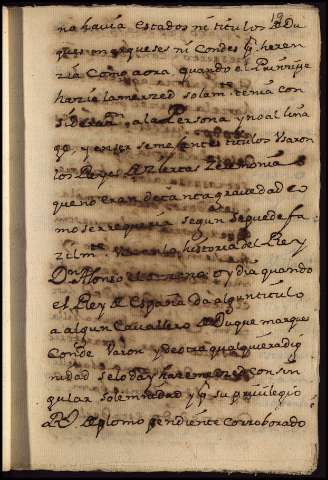 19
no havia estados ni titulos de Du
ques marqueses ni Condes pr. heren
zia como aora quando el Prinzipe
hazia la merzed solamte. tenia con
siderazon. a la Persona y no al lina
ge, y en ser semejantes titulos usaron
los Reyes de ziertas Zeremonias
que no eran de tanta gravedad co
mo se requeria segun se puede fa
zilmte. ver en la historia del Rey
Dn. Alfonso el onzeno oy dia quando
el Rey de España da algun titulo
a algun Cavallero de Duque marques
Conde Varon y de otra qualquiera dig
nidad se lo da y haze merzed con sin
gular solemnidad y pr. su privilegio
Rl. de plomo pendiente corroborado